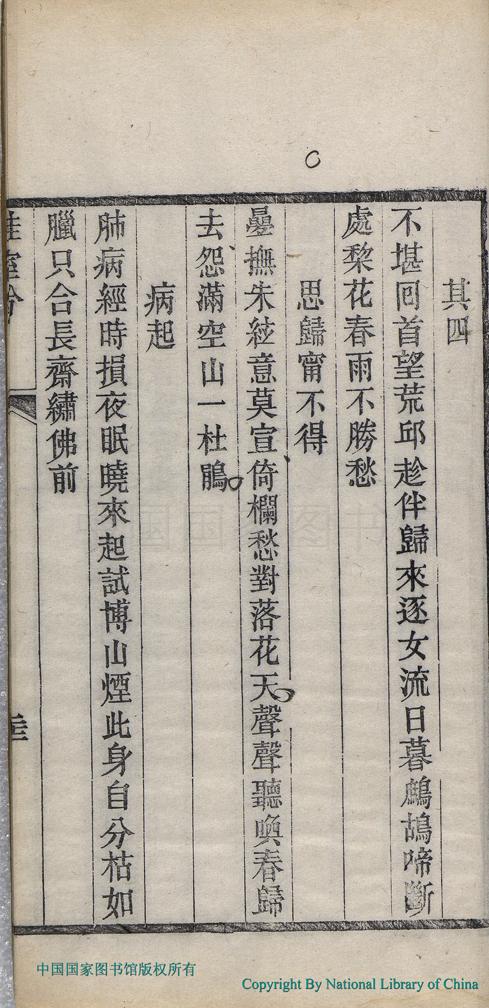 其四
不堪回首望荒邱趁伴歸來逐女流日暮鷓鴣啼斷
處棃花春雨不勝愁
思歸甯不得
曡撫朱絃意莫宣倚欄愁對落花天聲聲聽喚春歸
去怨滿空山一杜鵑
病起
肺病經時損夜眠曉來起試博山煙此身自分枯如
臘只合長齋繡佛前
中国国家图书馆版权所有
Copyright By National Library of China